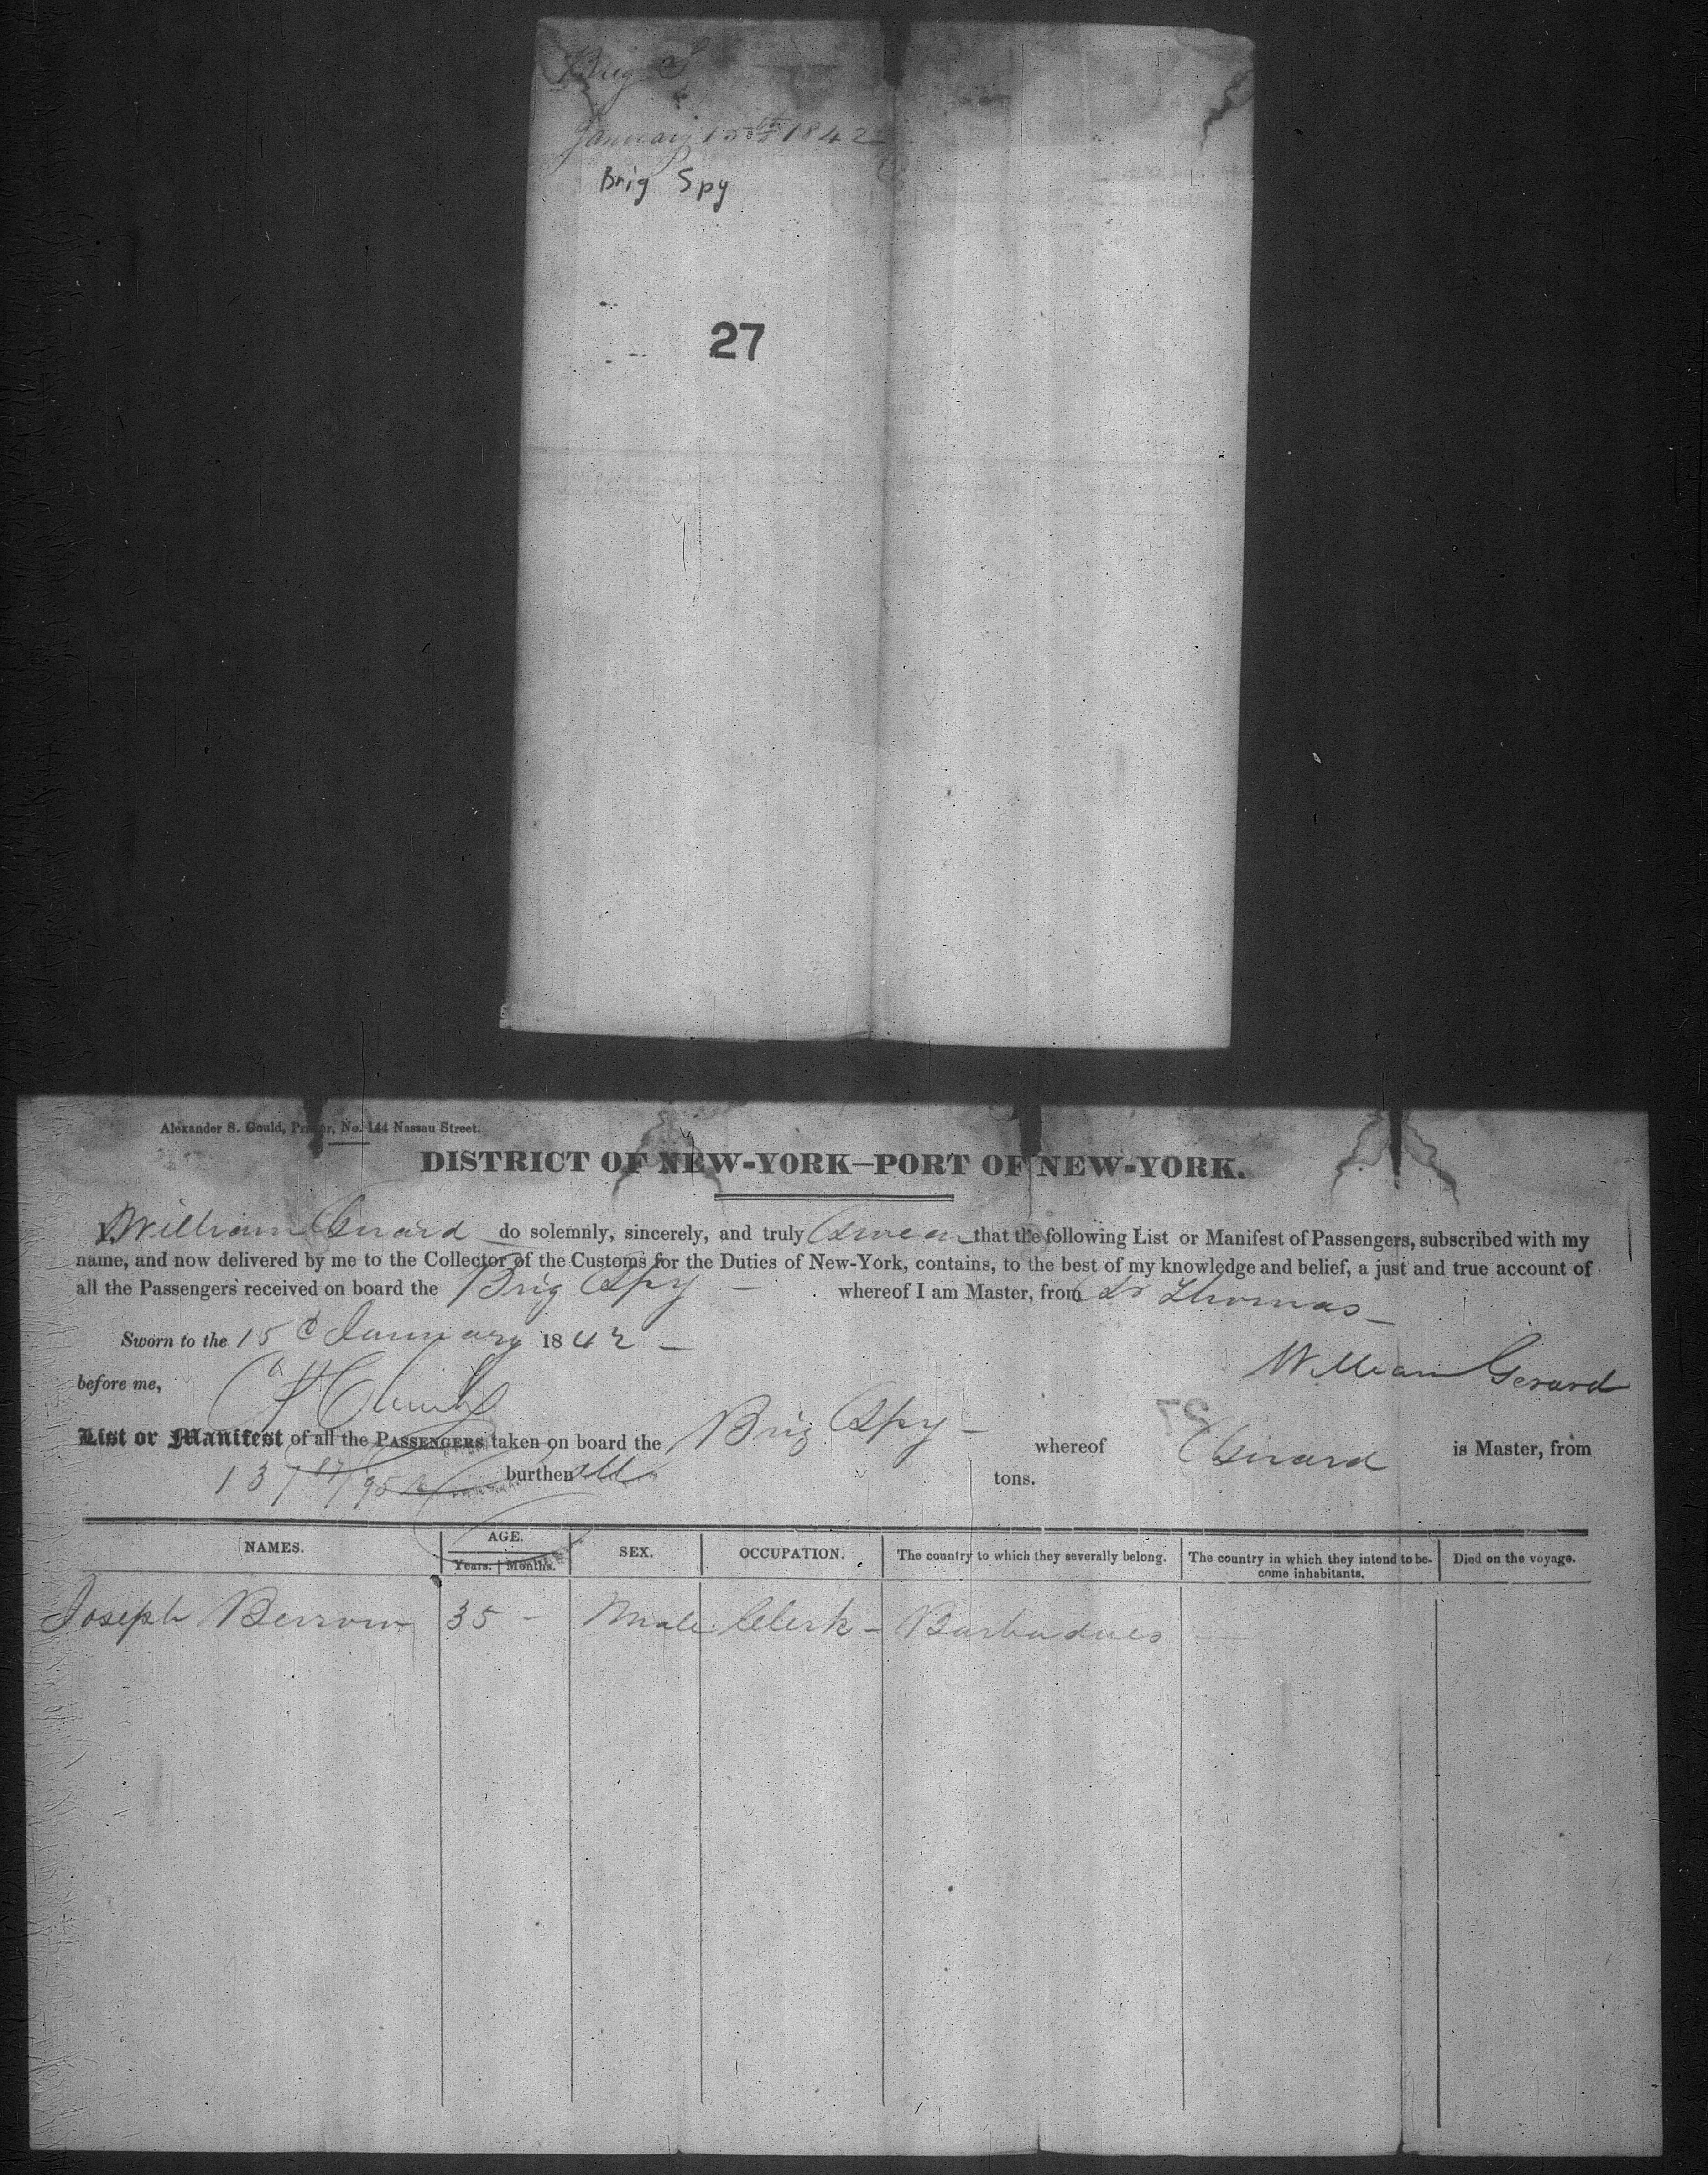 Brig S
January 15th 1842
Brig Spy
27
Alexander S. Gould, Printer, No. 144 Nassau Street.
DISTRICT OF NEW-YORK—PORT OF NEW-YORK.
I, William Gerard do solemnly, sincerely, and truly Swear that the following List or Manifest of Passengers, subscribed with my
name, and now delivered by me to the Collector of the Customs for the Duties of New-York, contains, to the best of my knowledge and belief, a just and true account of
all the Passengers received on board the Brig Spy — whereof I am Master, from St Thomas —
Sworn to the 15th January 1842 —
William Gerard
before me,
List or Manifest of all the PASSENGERS taken on board the Brig Spy — whereof Gerard is Master, from
burthen tons.
NAMES. AGE. SEX. OCCUPATION. The country to which they severally belong. The country in which they intend to be- Died on the voyage.
Years. Months. come inhabitants.
Joseph Berrow 35 – Male Clerk – Barbadoes —